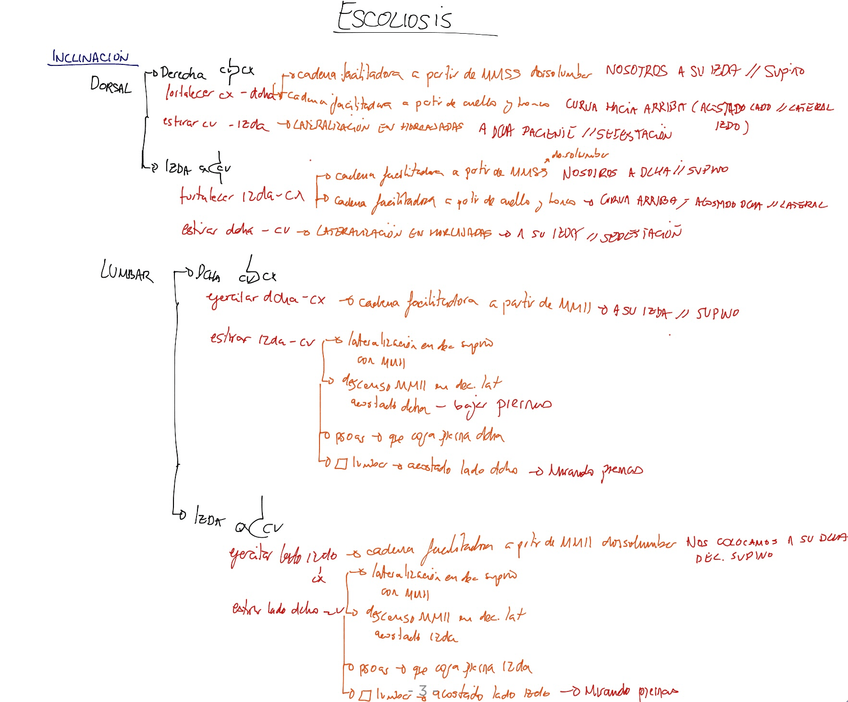 ESCOLIOSIS
INCLINACIÓN
DORSAL
Derecha cv cx
cadena facilitadora a partir de MMSS dorsolumbar NOSOTROS A SU IZDA // SUPINO
fortalecer cx - dcha
cadena facilitadora a partir de cuello y tronco CURVA HACIA ARRIBA (ACOSTADO LADO // LATERAL IZDO)
estirar cv - izda LATERALIZACIÓN EN HORCAJADAS A DCHA PACIENTE // SEDESTACIÓN
IZDA cx cv
cadena facilitadora a partir de MMSS dorsolumbar NOSOTROS A DCHA // SUPINO
fortalecer izda - cx
cadena facilitadora a partir de cuello y tronco CURVA ARRIBA, ACOSTADO DCHA // LATERAL
estirar dcha - cv LATERALIZACIÓN EN HORCAJADAS A SU IZDA // SEDESTACIÓN
LUMBAR
DCHA cv cx
ejercitar dcha - cx cadena facilitadora a partir de MMII A SU IZDA // SUPINO
estirar izda - cv
lateralización en dec supino
con MMII
descenso MMII en dec. lat
acostado dcha - bajar piernas
psoas que coja pierna dcha
□ lumbar acostado lado dcho Mirando piernas
IZDA cx cv
ejercitar lado izdo cadena facilitadora a partir de MMII dorsolumbar NOS COLOCAMOS A SU DCHA
DEC. SUPINO
cx
lateralización en dec supino
con MMII
estirar lado dcho - cv
descenso MMII en dec. lat
acostado izda
psoas que coja pierna izda
□ lumbar acostado lado izdo Mirando piernas
- 3